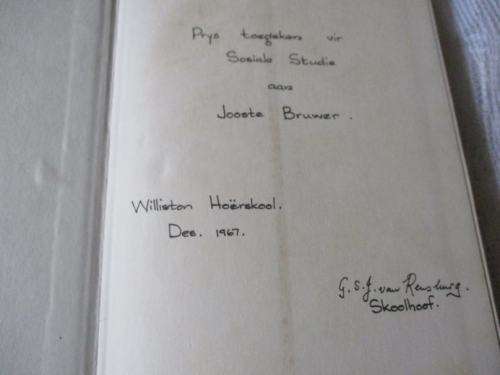 Prys toegeken vir
Sosiale Studie
aan
Jooste Bruwer.
Williston Hoërskool.
Des. 1967.
G. S. J. van Rensburg.
Skoolhoof.